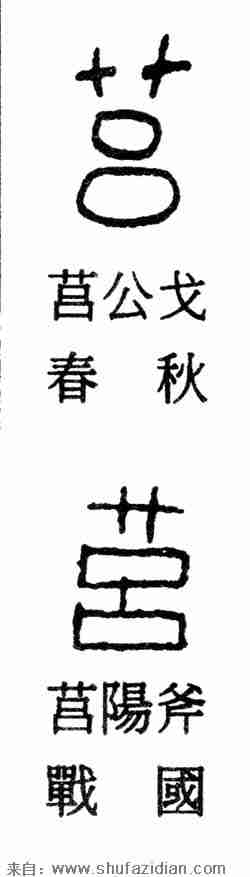 莒
莒公戈
春秋
莒
莒陽斧
戰國
来自：www.shufazidian.com